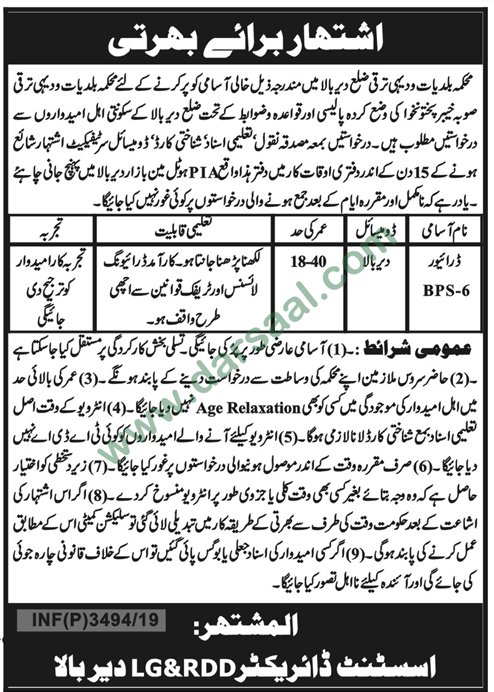 اشتہار برائے بھرتی
محکمہ بلدیات و دیہی ترقی ضلع دیر بالا میں مندرجہ ذیل خالی آسامی کو پر کرنے کے لئے محکمہ بلدیات و دیہی ترقی
صوبہ خیبر پختونخوا کی وضع کردہ پالیسی اور قواعد و ضوابط کے تحت ضلع دیر بالا کے سکونتی اہل امیدواروں سے
درخواستیں مطلوب ہیں۔ درخواستیں بمعہ مصدقہ نقول، تعلیمی اسناد، شناختی کارڈ، ڈومیسائل سرٹیفکیٹ اشتہار شائع
ہونے کے 15 دن کے اندر دفتری اوقات کار میں دفتر ہذا واقع PIA ہوٹل مین بازار دیر بالا میں پہنچ جانی چاہئے
۔ یاد رہے کہ نامکمل اور مقررہ ایام کے بعد جمع ہونے والی درخواستوں پر کوئی غور نہیں کیا جائیگا۔
نام آسامی ڈومیسائل عمر کی حد تعلیمی قابلیت تجربہ
ڈرائیور BPS-6 دیر بالا 18-40 لکھنا پڑھنا جانتا ہو۔ کارآمد ڈرائیونگ لائسنس اور ٹریفک قوانین سے اچھی طرح واقف ہو۔ تجربہ کار امیدوار کو ترجیح دی جائیگی
عمومی شرائط:۔ (1) آسامی عارضی طور پر پر کی جائیگی۔ تسلی بخش کارکردگی پر مستقل کیا جا سکتا ہے
۔ (2) حاضر سروس ملازمین اپنے محکمہ کی وساطت سے درخواست دینے کے پابند ہونگے۔ (3) عمر کی بالائی حد
میں اہل امیدوار کی موجودگی میں کسی کو بھی Age Relaxation نہیں دیا جائیگا۔ (4) انٹرویو کے وقت اصل
تعلیمی اسناد بمع شناختی کارڈ لانا لازمی ہوگا۔ (5) انٹرویو کیلئے آنے والے امیدواروں کو کوئی ٹی اے ڈی اے نہیں
دیا جائیگا۔ (6) صرف مقررہ وقت کے اندر موصول ہونیوالی درخواستوں پر غور کیا جائیگا۔ (7) زیر دستخطی کو اختیار
حاصل ہے کہ وہ وجہ بتائے بغیر کسی بھی وقت کلی یا جزوی طور پر انٹرویو منسوخ کر دے۔ (8) اگر اس اشتہار کی
اشاعت کے بعد حکومت وقت کی طرف سے بھرتی کے طریقہ کار میں تبدیلی لائی گئی تو سلیکشن کمیٹی اس کے مطابق
عمل کرنے کی پابند ہوگی۔ (9) اگر کسی امیدوار کی اسناد جعلی یا بوگس پائی گئیں تو اس کے خلاف قانونی چارہ جوئی
کی جائے گی اور آئندہ کیلئے نااہل تصور کیا جائیگا۔
INF(P)3494/19
المشتهر:
اسسٹنٹ ڈائریکٹر LG&RDD دیر بالا
www.darsaal.com